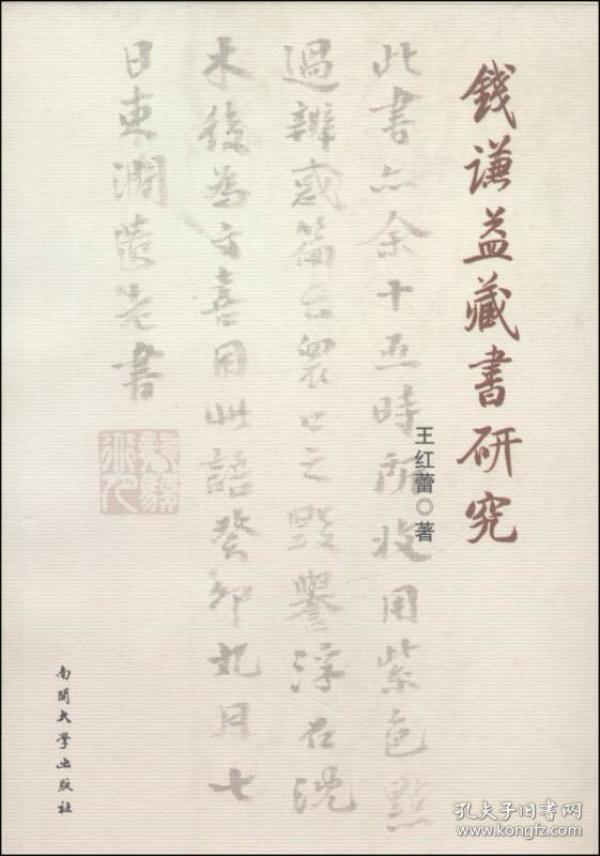 錢謙益藏書研究
王红蕾○著
此書亦余十五時所收用紫色點
過辨惑篇云衆口之毀譽浮石沈
木後為文喜用此語癸卯九月七
日東澗遺老書
南開大学出版社
孔夫子旧书网
www.kongfz.com